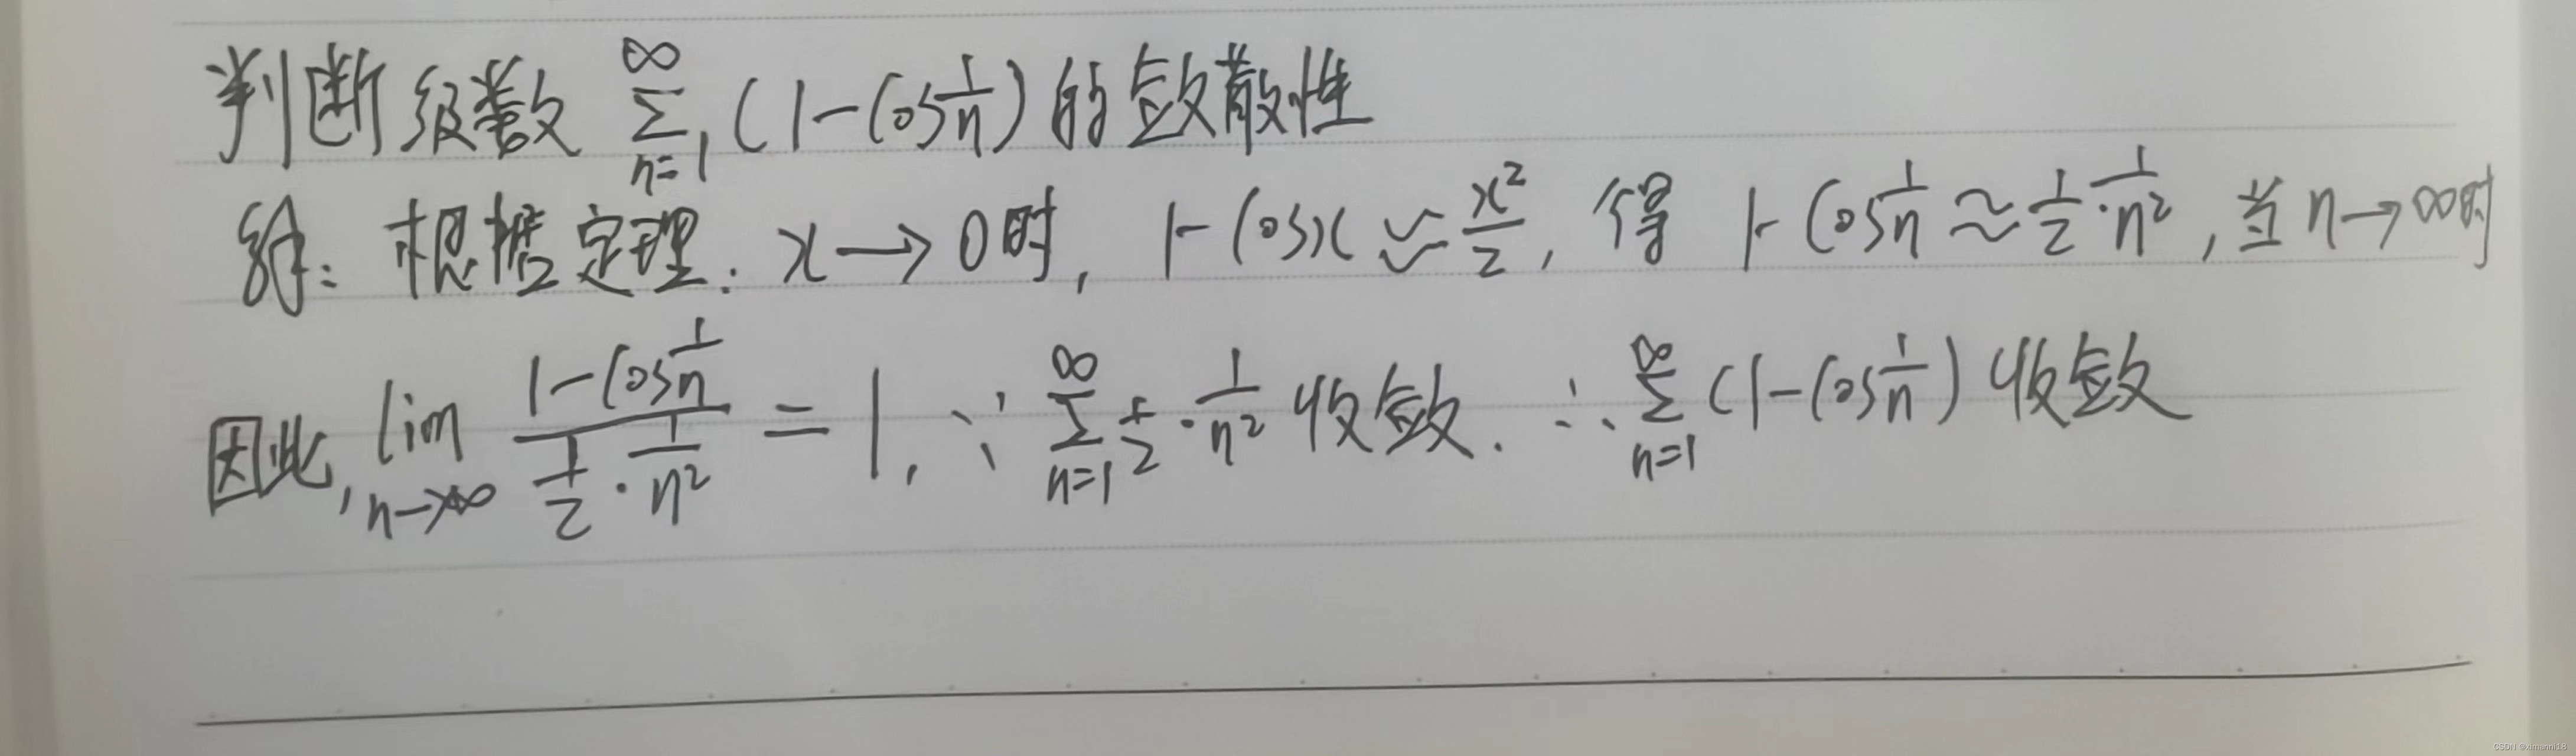 判断级数 ∑_{n=1}^{∞} (1-cos 1/n) 的敛散性
解: 根据定理: x→0时, 1-cosx ≈ x²/2, 得 1-cos 1/n ≈ 1/2·1/n², 当n→∞时
因此, lim_{n→∞} (1-cos 1/n)/(1/2·1/n²) = 1, ∵ ∑_{n=1}^{∞} 1/2·1/n² 收敛. ∴ ∑_{n=1}^{∞} (1-cos 1/n) 收敛